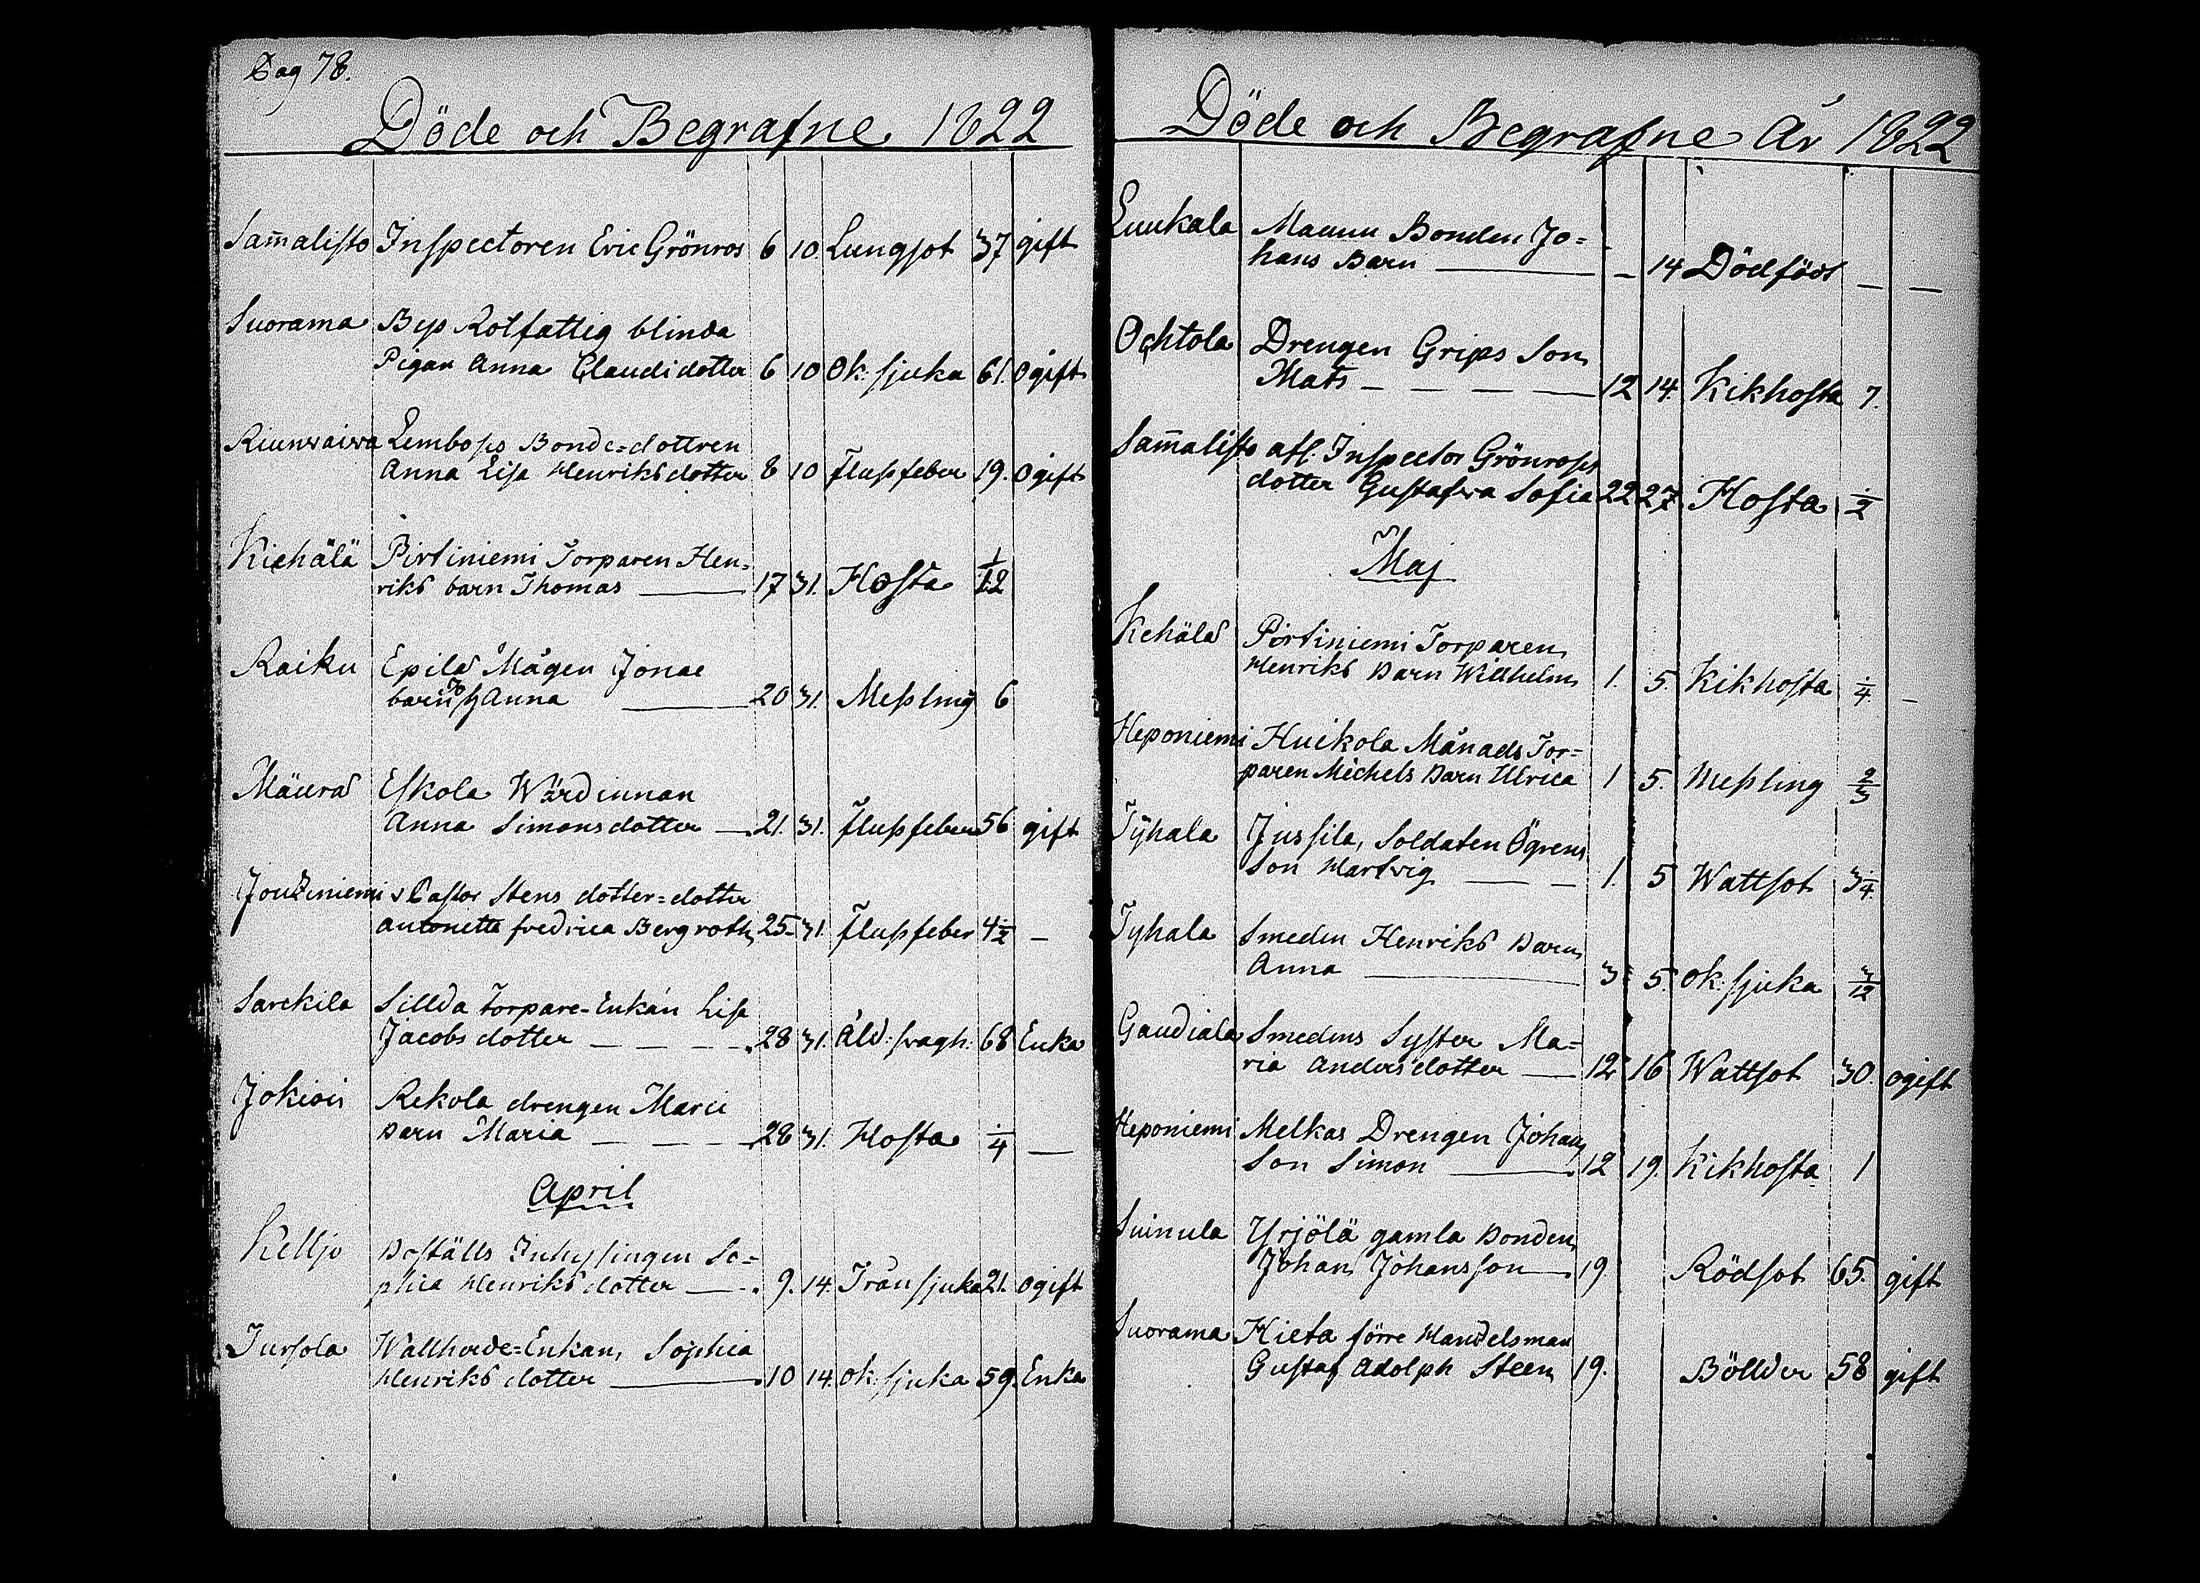 Pag 78.
Döde och Begrafne 1822
Sam̄alisto Inspectoren Eric Grönros 6 10. Lungsot 37 gift
Suorama Bys Rotfattig blinda
Pigan Anna Claudidotter 6 10 Ok: sjuka 61. Ogift
Riunvaiva Lembois Bonde=dottren
Anna Lisa Henriksdotter 8 10 flussfeber 19. Ogift
Kiehälä Pirtiniemi Torparen Hen=
riks barn Thomas 17 31. Hosta 1/12
Raiku Epilä Mågen Jonae
barn Anna 20 31. Messling 6
Mäurä Eskola Wärdinnan
Anna Simonsdotter 21. 31. flussfeber 56 gift
Jouziniemi v Pastor Stens dotter=dotter
Antonetta fredrica Bergroth 25 31. flussfeber 4 1/2 —
Sarckila Sillda Torpare-Enkan Lisa
Jacobs dotter 28 31. Åld: svagh: 68 Enka
Jokiois Rekola drengen Marci
Barn Maria 28 31. Hosta 1/4 —
April
Kelljo Boställs Inhysingen So=
phia Henriksdotter 9. 14. Trånsjuka 21. ogift
Tursola Wallherde=Enkan Sophia
Henriks dotter 10 14. ok: sjuka 59. Enka
Döde och Begrafne År 1822
Luukala Maunu Bonden Jo=
hans Barn — 14 Dödföd — —
Ochtola Drengen Grips Son
Mats 12 14. Kikhosta 7.
Sam̄alisto afl: Inspector Grönross
dotter Gustafva Sofia 22 27 Hosta 1/2
Maj
Kehälä Pirtiniemi Torparen
Henriks Barn Willhelm 1. 5. Kikhosta 1/4. —
Heponiemi Huikola Månads Tor=
paren Michels Barn Ulrica 1 5. Messling 2/3
Tyhala Jussila, Soldaten Ögrens
Son Hartvig 1. 5 Wattsot 3/4.
Tyhala Smeden Henriks Barn
Anna 3 5. ok: sjuka 3/12
Gaudiala Smedens Syster Ma=
ria Andersdotter 12 16 Wattsot 30. ogift
Heponiemi Melkas Drengen Johan
Son Simon 12 19. Kikhosta 1
Suinula Yrjölä gamla Bonden
Johan Johansson 19. Rödsot 65. gift
Suorama Hieta förre Handelsman
Gustaf Adolph Steen 19. Böllder 58 gift